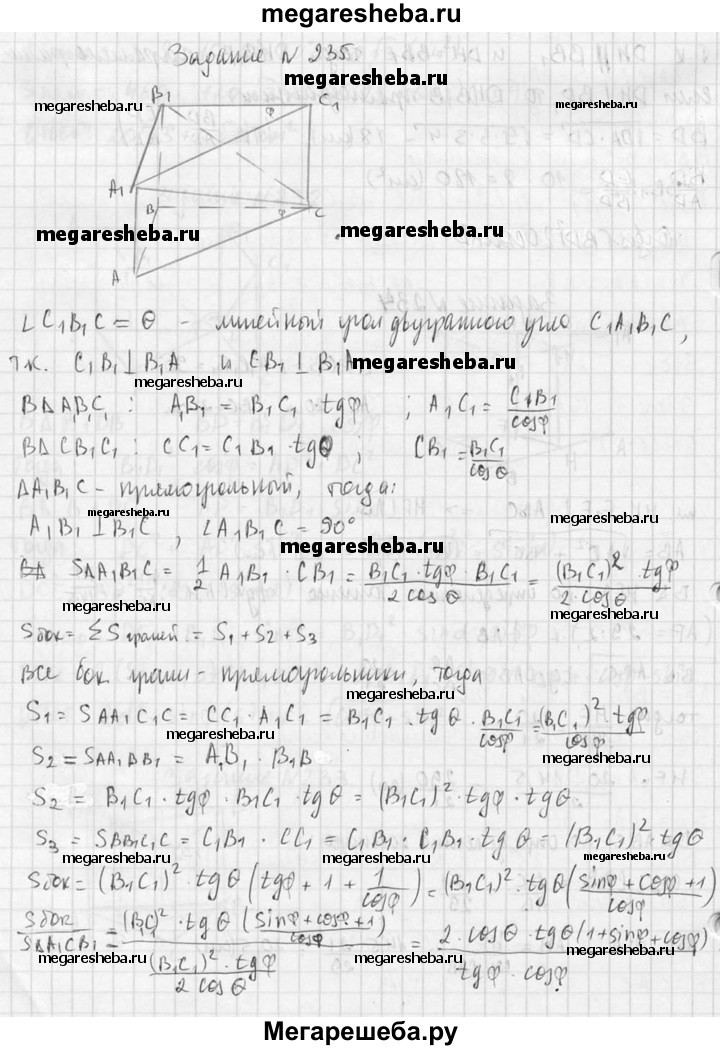 megaresheba.ru
Задание N 235
megaresheba.ru
megaresheba.ru
B1 C1 megaresheba.ru
φ
A1
B φ C
megaresheba.ru megaresheba.ru
A
∠C1B1C = θ - линейный угол двугранного угла C1A1B1C,
т.к. C1B1 ⊥ B1A и CB1 ⊥ B1A, megaresheba.ru
megaresheba.ru
ВΔA1B1C1 : A1B1 = B1C1 · tgφ ; A1C1 = C1B1/cosφ
ВΔCB1C1 : CC1 = C1B1 · tgθ ; CB1 = B1C1/cosθ
ΔA1B1C - прямоугольный, тогда:
megaresheba.ru
A1B1 ⊥ B1C , ∠A1B1C = 90° megaresheba.ru
megaresheba.ru
SΔA1B1C = 1/2 A1B1 · CB1 = B1C1 · tgφ · B1C1/2cosθ = (B1C1)² · tgφ/2cosθ
megaresheba.ru
Sбок = ΣSграней = S1 + S2 + S3 megaresheba.ru
Все бок грани - прямоугольники, тогда
megaresheba.ru
S1 = SAA1C1C = CC1 · A1C1 = B1C1 · tgθ · B1C1/cosφ = (B1C1)² · tgφ/cosφ
S2 = SAA1BB1 = A1B1 · B1B megaresheba.ru
megaresheba.ru
S2 = B1C1 · tgφ · B1C1 · tgθ = (B1C1)² · tgφ · tgθ
S3 = SBB1C1C = C1B1 · CC1 = C1B1 · C1B1 · tgθ = (B1C1)² · tgθ
megaresheba.ru megaresheba.ru
Sбок = (B1C1)² · tgθ (tgφ + 1 + 1/cosφ) = (B1C1)² · tgθ (sinφ + cosφ + 1/cosφ)
megaresheba.ru
Sбок/SΔA1CB1 = (B1C1)² · tgθ (sinφ + cosφ + 1/cosφ)/(B1C1)² · tgφ/2cosθ = 2 · cosθ · tgθ (1 + sinφ + cosφ)/tgφ · cosφ.
megaresheba.ru
megaresheba.ru
Мегарешеба.ру